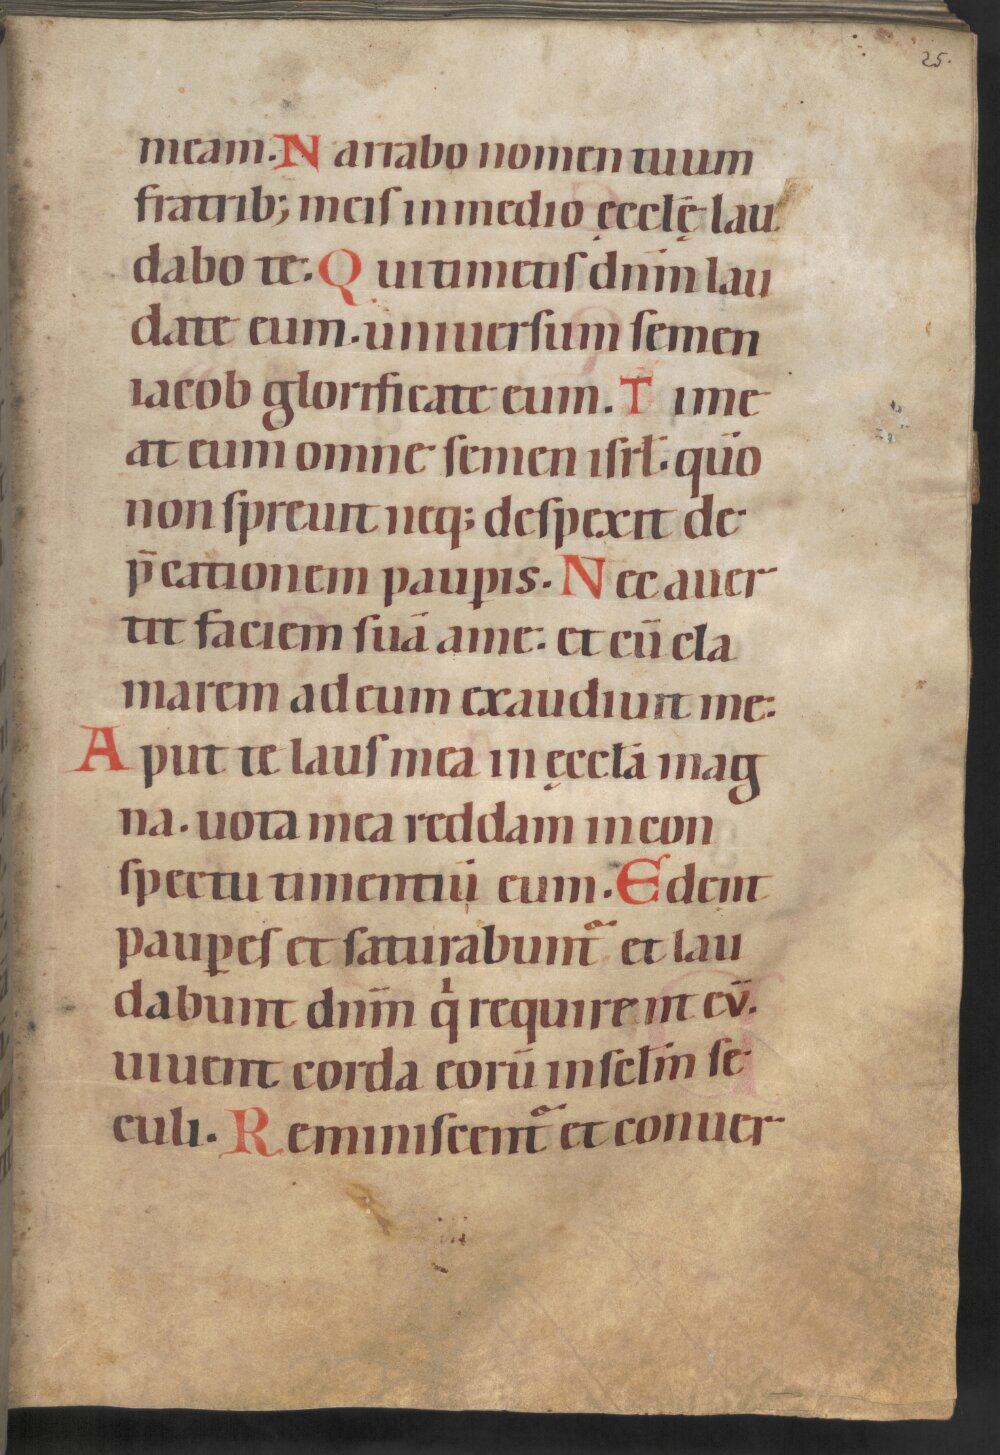 25.
meam. Narrabo nomen tuum
fratrib; meis in medio ęcclę̄ lau
dabo te: Qui timetis dnm̄ lau
date eum. uniuersum semen
iacob glorificate eum. Time
at eum omne semen isrł. quō
non spreuit neq; despexit de
p̄cationem paup̱is. Nec auer
tit faciem suā a me: et cū cla
marem ad eum exaudiuit me:
Aput te laus mea in ęcclā mag
na. uota mea reddam in con
spectu timentiū eum. Edent
paup̱es et saturabunt᷑ et lau
dabunt dnm̄ qͥ requirent eū.
uiuent corda eorū in sclm̄ se
culi. Reminiscent᷑ et conuer